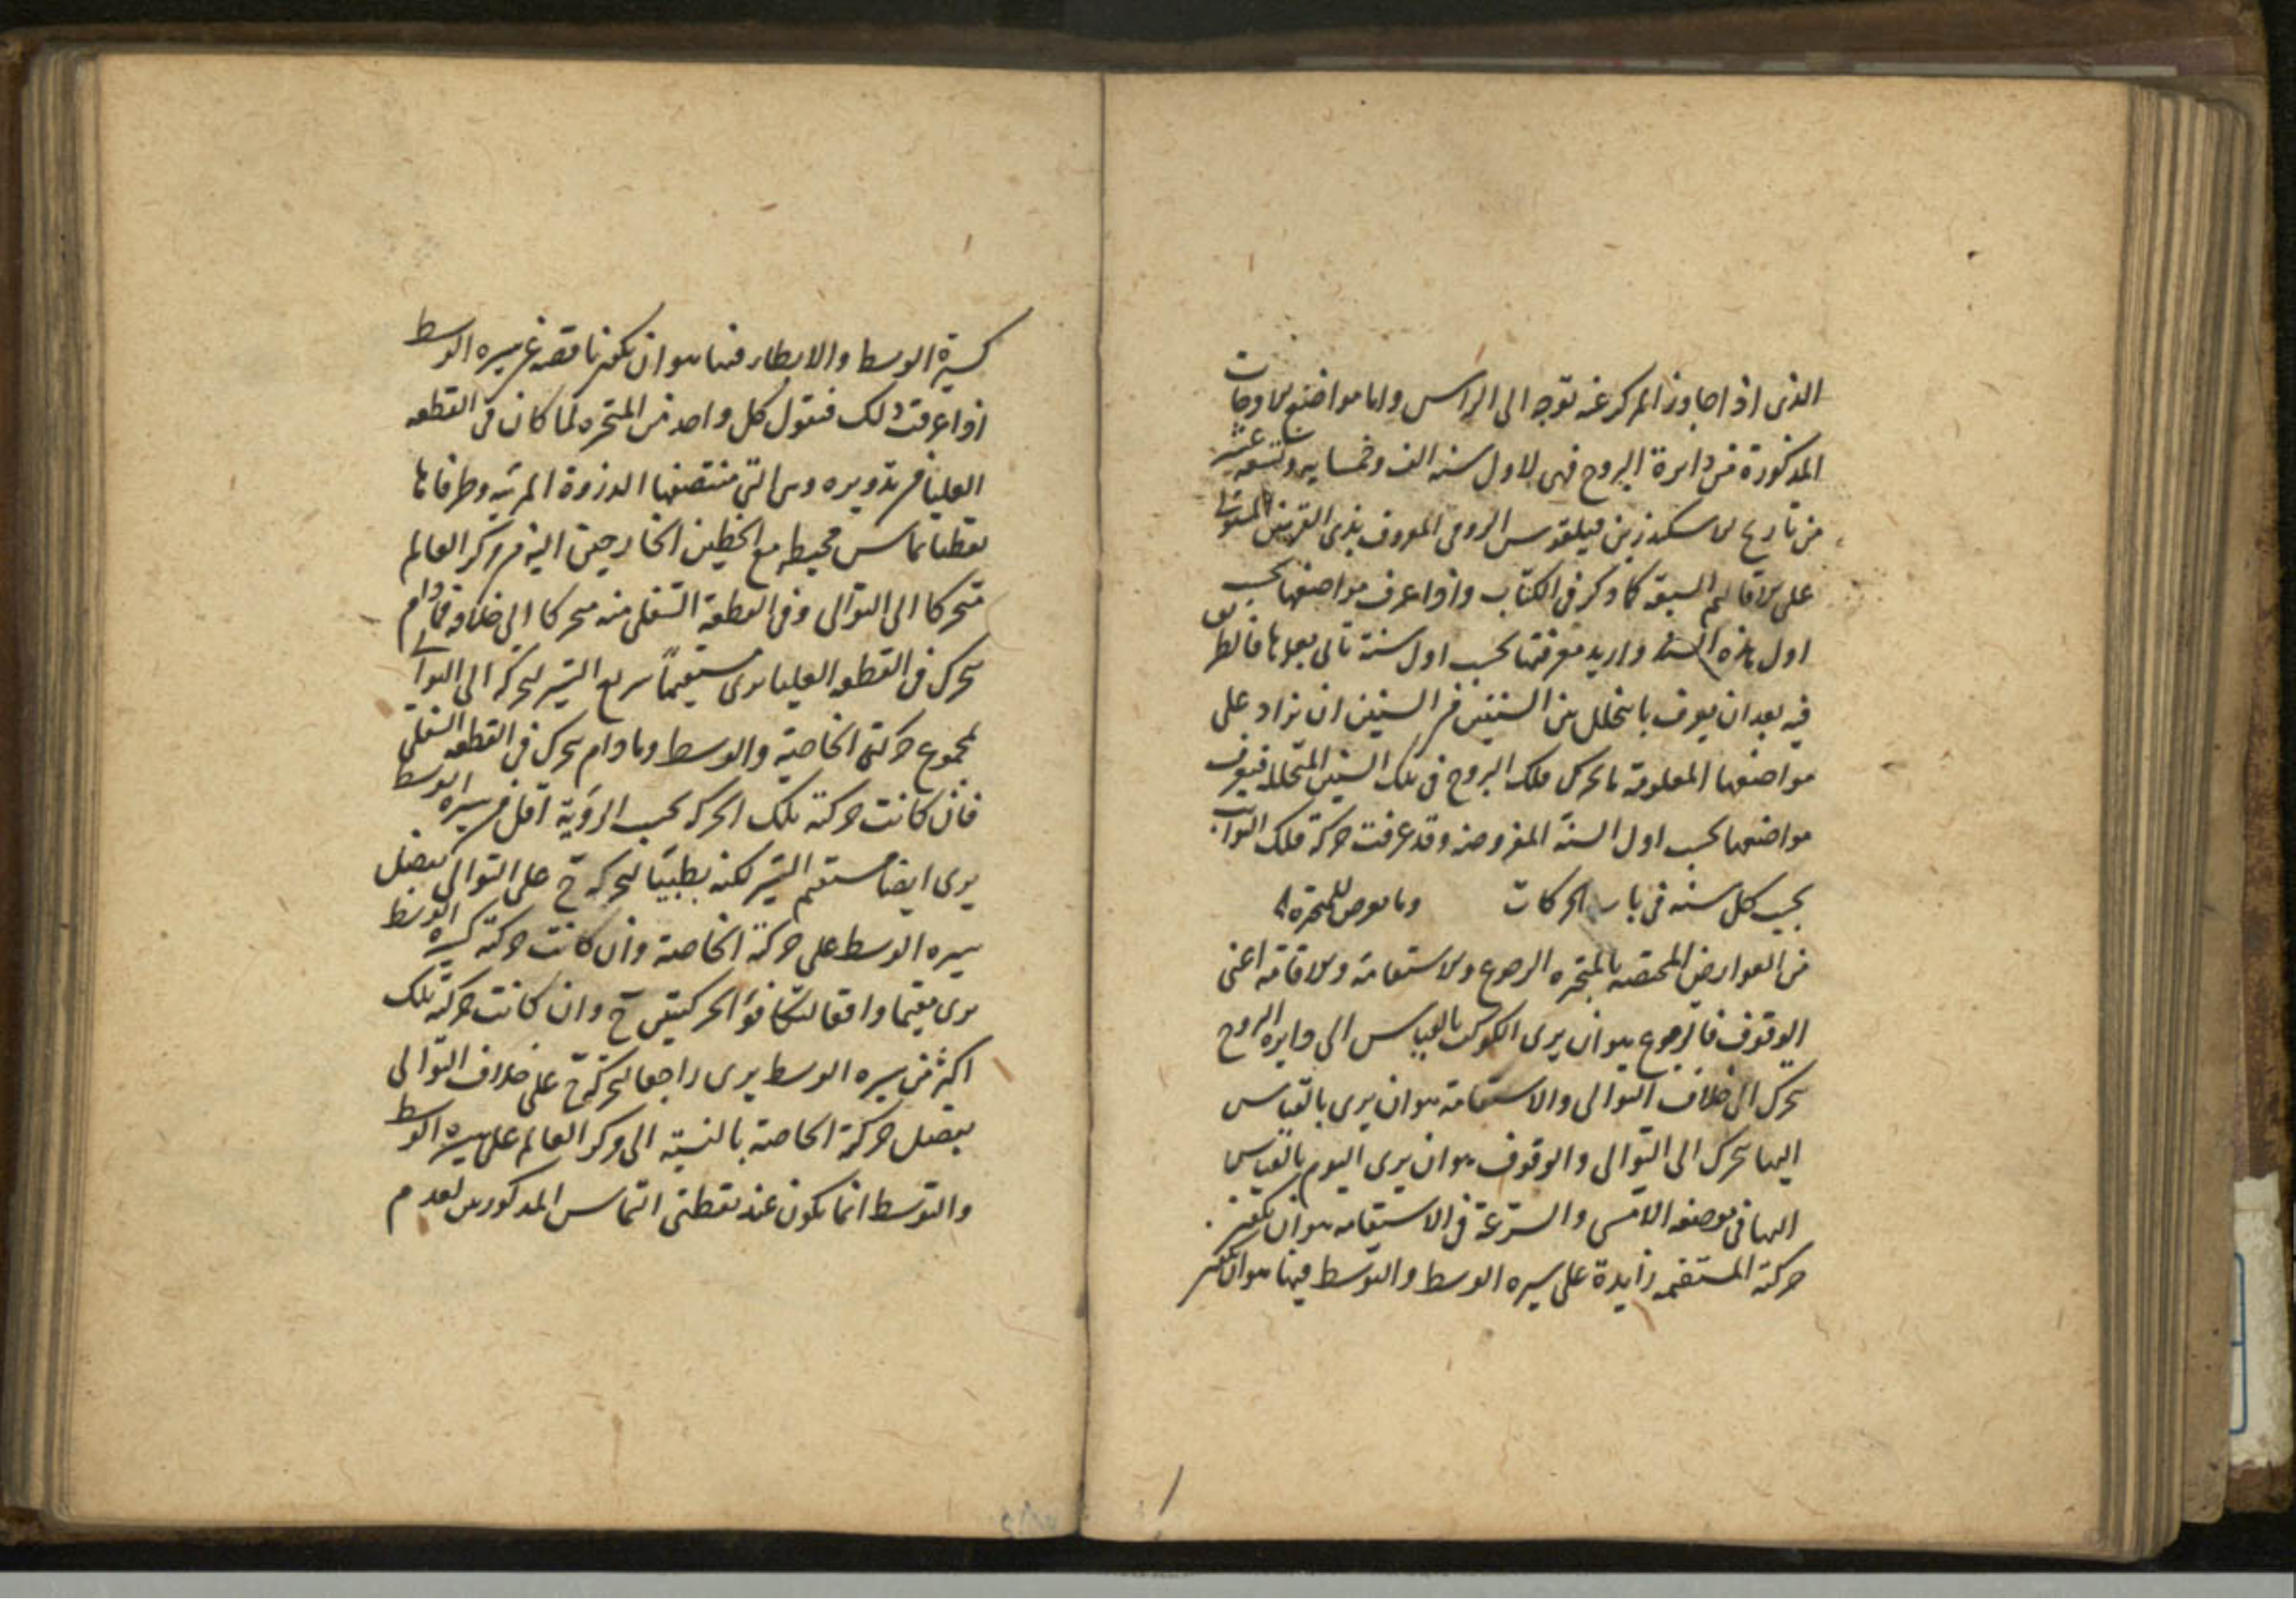 الذى اذا جاوز المركز عنه توجه الى الراس واما مواضع الاوجات
المذكورة من دايرة البروج فهى لاول سنه الف وخمسمايه وتسعه عشر
من تاريخ الاسكندر بن فيلقوس الرومى المعروف بذى القرنين المستولى
على الاقاليم السبعة كما ذكر فى الكتاب واذا عرف مواضعها بحسب
اول هذه السنة واريد معرفتها بحسب اول سنة تاتى بعدها فالطريق
فيه بعد ان يعرف ما يتخلل بين السنتين من السنين ان نزاد على
مواضعها المعلومة ما تحرك فلك البروج فى تلك السنين المتخلله فيعرف
مواضعها بحسب اول السنة المفروضة وقد عرفت حركة فلك الثوابت
بحسب كل سنه فى باب الحركات وما يعرض للمتحيرة
من العوارض المختصه بالمتحيره الرجوع والاستقامة والاقامة اعنى
الوقوف فالرجوع هو ان يرى الكوكب بالقياس الى دايرة البروج
تحرك الى خلاف التوالى والاستقامة هو ان يرى بالقياس
اليها تحرك الى التوالى والوقوف هو ان يرى اليوم بالقياس
اليها فى موضعه الامسى والسرعة فى الاستقامه هو ان تكون
حركة المستقيم زايدة على سيره الوسط والتوسط فيها هو ان تكون
كسيرة الوسط والابطاء فيها هو ان تكون ناقصه عن سيره الوسط
اذا عرفت ذلك فنقول كل واحد من المتحيره لما كان فى القطعه
العليا من تدويره وهى التى منتصفها الذروة المرئيه وطرفاها
نقطتا تماس محيطه مع الخطين الخارجين اليه من مركز العالم
متحركا الى التوالى وفى القطعة السفلى منه متحركا الى خلافه فما دام
تحرك فى القطعه العليا يرى مستقيماً سريع السير لتحركه الى التوالى
لمجموع حركتى الخاصية والوسط وما دام تحرك فى القطعه السفلى
فان كانت حركته تلك الحركه بحسب الرؤية اقل من سيره الوسط
يرى ايضا مستقيم السير لكنه بطيئا لتحركه ح على التوالى بفضل
سيره الوسط على حركة الخاصة وان كانت حركته كسيره الوسط
يرى مقيما واقفا لتكافؤ الحركتين ح وان كانت حركته تلك
اكثر من سيره الوسط يرى راجعا لتحركه ح على خلاف التوالى
بفضل حركة الخاصة بالنسبة الى مركز العالم على سيره الوسط
والتوسط انما يكون عند نقطتى التماس المذكورين لعدم